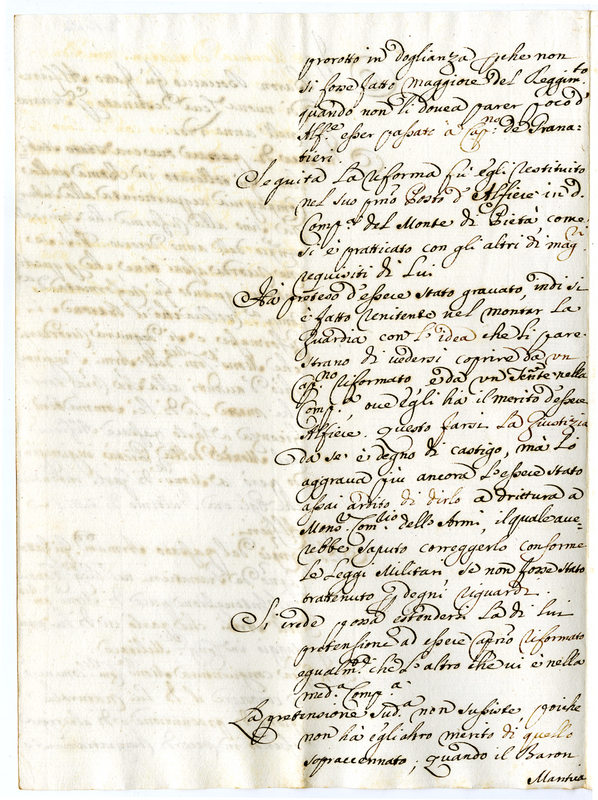 prorotto in doglianza p̱che non
si fosse fatto maggiore del Reggim.to
quando non li dovea parer poco d'
Alf.re esser passato à Cap.no de Grana=
tieri.
Seguita La riforma fù egli restituito
nel suo p̱rio Posto d'Alfiere in d.a
Comp.a del Monte di Pietà, come
si è pratticato con gli altri di mag.r
requisiti di Lui.
Hà preteso d'essere stato gravato, indi si
è fatto renitente nel montar La
Guardia con L'idea che li pare
strano di vedersi coprire da vn
Cap.no riformato, e da vn Ten.te nella
Comp.a, ove egli hà il merito d'essere
Alfiere. Questo farsi La Giustizia
da se è degno di castigo, mà Lo
aggrava più ancora L'essere stato
assai ardito di dirlo a drittura a
Mons. Com.rio dell'Armi, il quale avve=
rebbe saputo correggerlo conforme
Le Leggi Militari, se non fosse stato
trattenuto p̱ degni riguardi.
Si crede possa estendersi La di lui
pretensione ad essere Cap.no riformato
egualm.te che L'altro che vi è nella
med.a Comp.a
La pretensione sud.a non sussiste, poiche
non hà egli altro merito di quello
sopraccennato; quando il Baron
Mantica